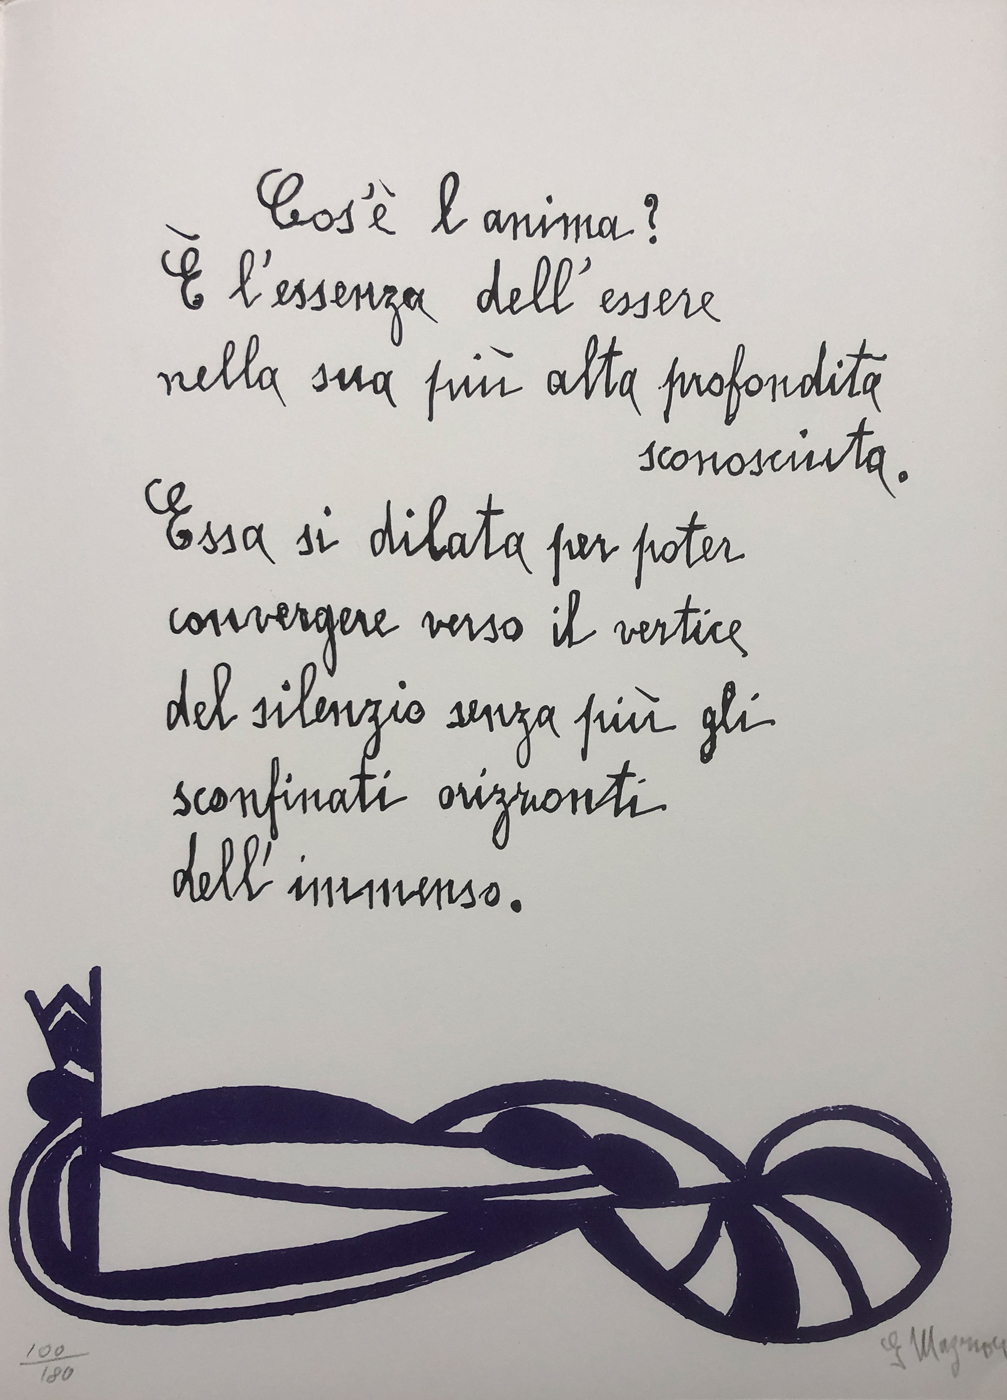 Cos'è l anima?
È l'essenza dell'essere
nella sua più alta profondità
sconosciuta.
Essa si dilata per poter
convergere verso il vertice
del silenzio senza più gli
sconfinati orizzonti
dell'immenso.
100/180